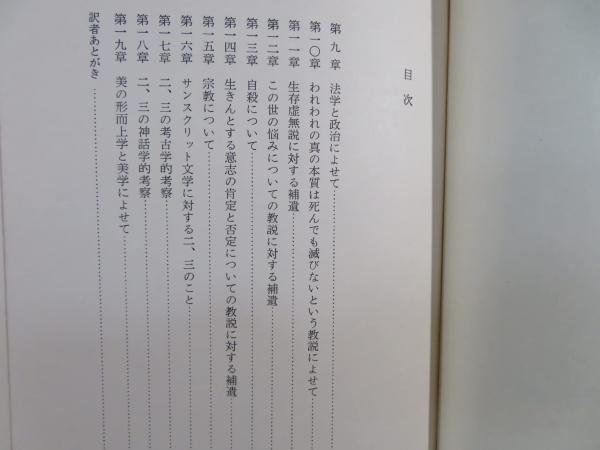 目次
第九章 法学と政治によせて
第一〇章 われわれの真の本質は死んでも滅びないという教説によせて
第一一章 生存虚無説に対する補遺
第一二章 この世の悩みについての教説に対する補遺
第一三章 自殺について
第一四章 生きんとする意志の肯定と否定についての教説に対する補遺
第一五章 宗教について
第一六章 サンスクリット文学に対する二、三のこと
第一七章 二、三の考古学的考察
第一八章 二、三の神話学的考察
第一九章 美の形而上学と美学によせて
訳者あとがき